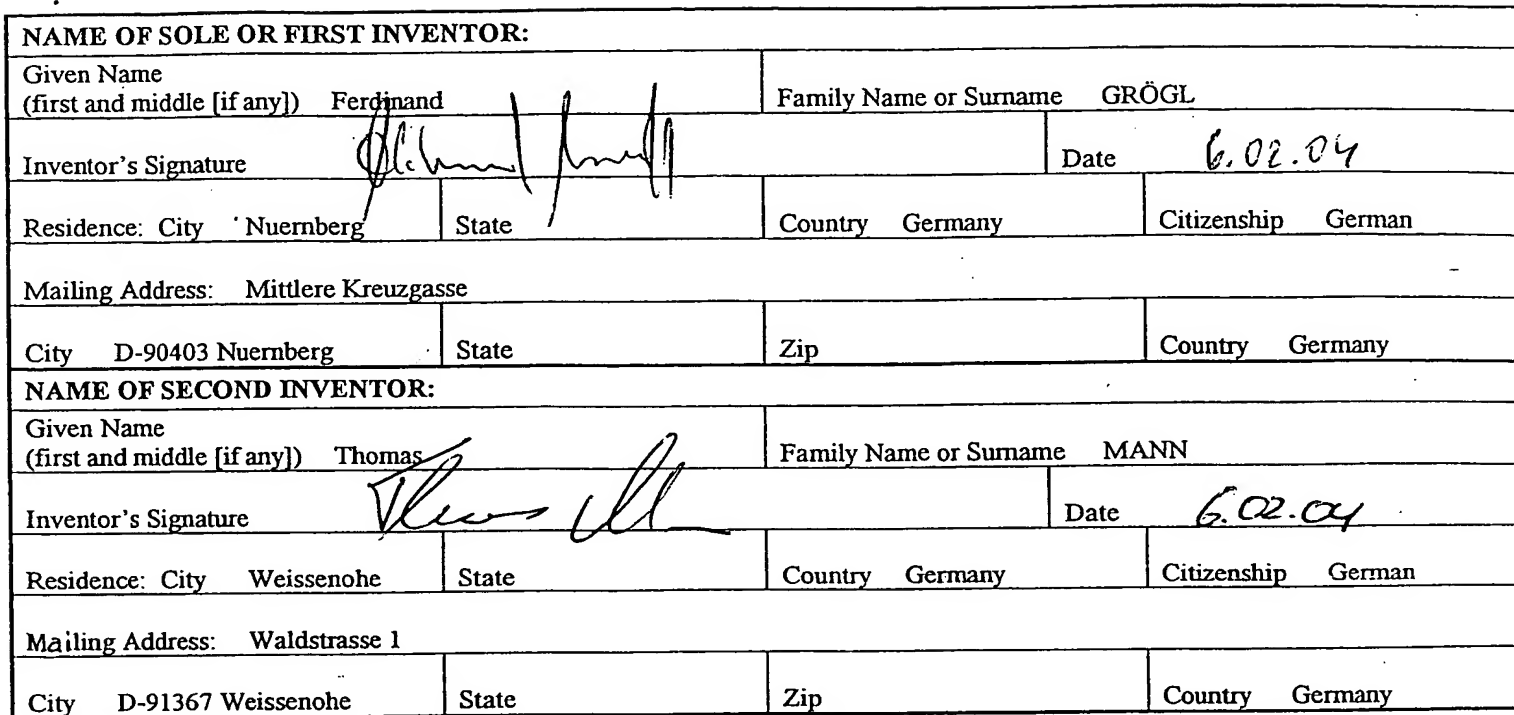 NAME OF SOLE OR FIRST INVENTOR:
Given Name
(first and middle [if any]) Ferdinand Family Name or Surname GRÖGL
Inventor's Signature Date 6.02.04
Residence: City Nuernberg State Country Germany Citizenship German
Mailing Address: Mittlere Kreuzgasse
City D-90403 Nuernberg State Zip Country Germany
NAME OF SECOND INVENTOR:
Given Name
(first and middle [if any]) Thomas Family Name or Surname MANN
Inventor's Signature Date 6.02.04
Residence: City Weissenohe State Country Germany Citizenship German
Mailing Address: Waldstrasse 1
City D-91367 Weissenohe State Zip Country Germany